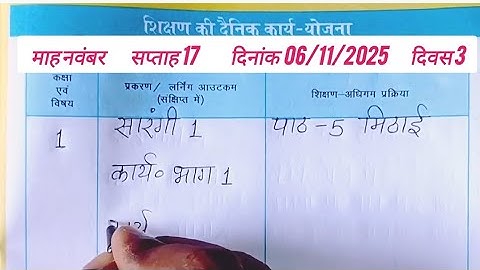 शिक्षण की दैनिक कार्य-योजना
माह नवंबर सप्ताह 17 दिनांक 06/11/2025 दिवस 3
कक्षा एवं विषय
प्रकरण/ लर्निंग आउटकम (संक्षिप्त में)
शिक्षण-अधिगम प्रक्रिया
1 सारंगी 1 पाठ -5 मिठाई
कार्य० भाग 1